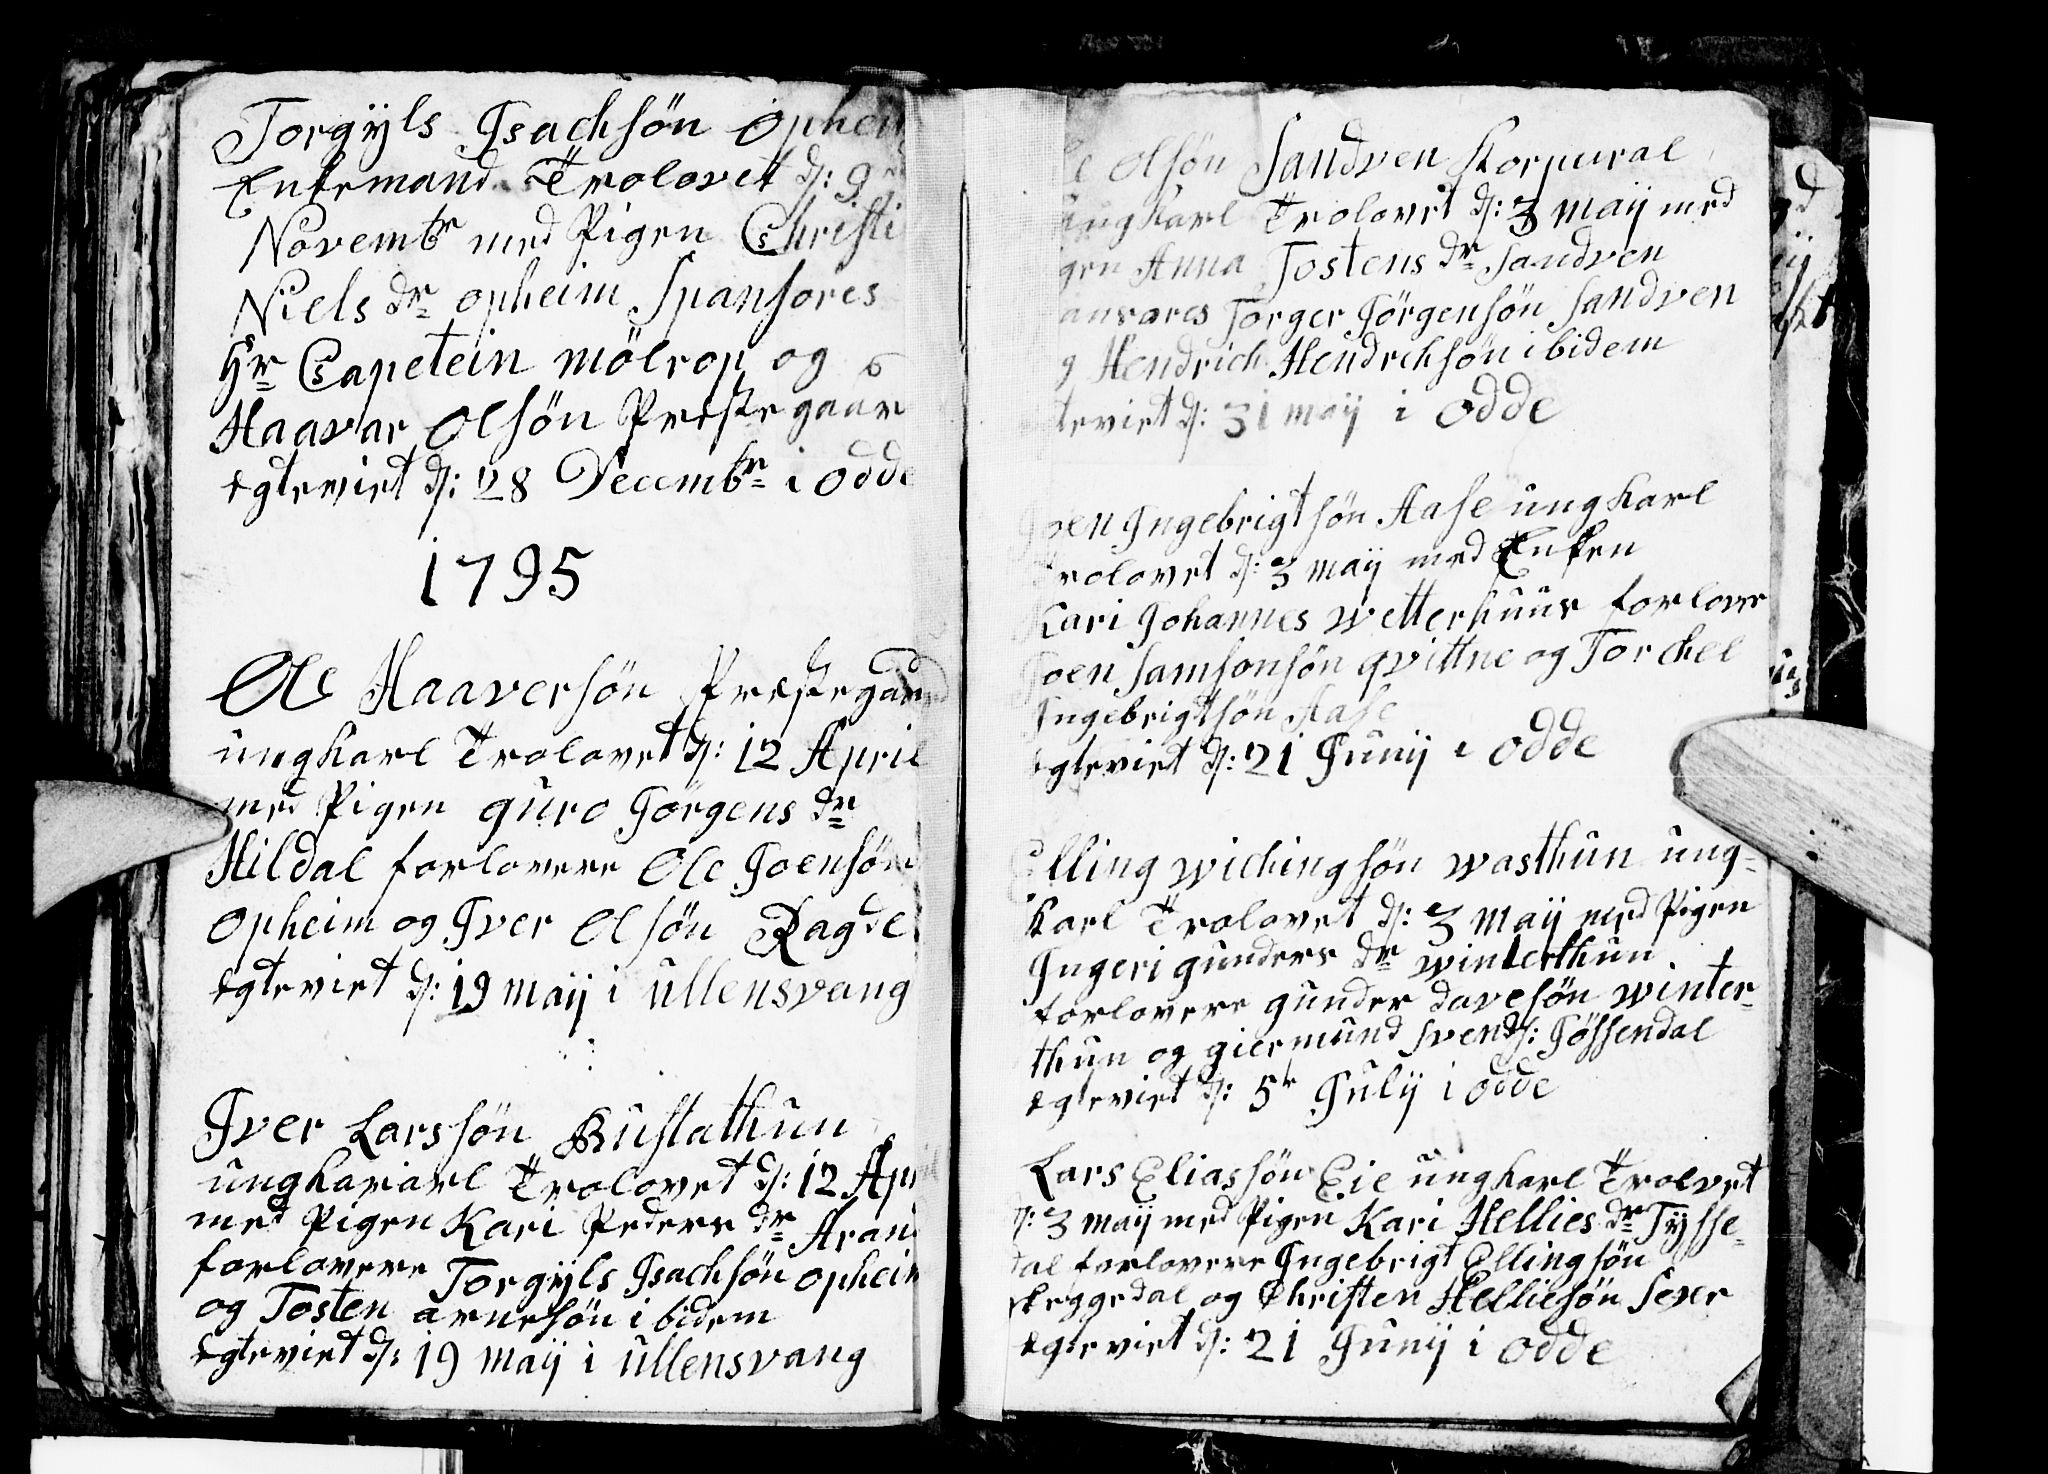 Torgÿls Isachsön Opheim
Enkemand Trolovet d: 9
Novembr med Pigen Christi
Niels dr opheim Spansores
Hr Capetein mölrop og
Haavar Olsön Prestegaar
egteviet d: 28 Decembr i Odde
1795
Ole Haaversön Prestegaard
ungkarl Trolovet d: 12 April
med Pigen guro Jörgens dr
Hildal forlovere Ole Joensön
Opheim og Iver Olsön Ragde
egteviet d: 19 maÿ i ullensvang
Iver Larssön Bustathun
ungkararl Trolovet d: 12 Apr
med Pigen Kari Peders dr Aran
forlovere Torgÿls Isachsön opheim
og Tosten arnesön ibidem
egteviet d: 19 maÿ i ullensvang
e Olsön Sandven Korpural
ungkarl Trolovet d: 3 maÿ med
gen Anna Tostens dr Sandven
ansares Torger Jörgensön Sandven
g Hendrich Hendrchsön ibidem
teviet d: 31 maÿ i Odde
Joen Ingebrigtsön Aase ungkarl
Trolovet d: 3 maÿ med Enken
Kari Johannes wetterhuus forlover
Joen Samsonsön qvittne og Torchel
Ingebrigtsön Aase
egteviet d: 21 Junÿ i Odde
Elling wichingsön wasthun ung-
karl Trolovet d: 3 maÿ med Pigen
Ingeri gunders dr winterthun
forlovere gunder davesön winter-
thun og giermund Svends: Jössendal
egteviet d: 5t Julÿ i Odde
Lars Eliassön Eie ungkarl Trolvet
d: 3 maÿ med Pigen Kari Hellies dr Tÿsse-
dal forlovere Ingebrigt Ellingsön
skeggedal og Christen Helliesön Sexe
egteviet d: 21 Junÿ i Odde